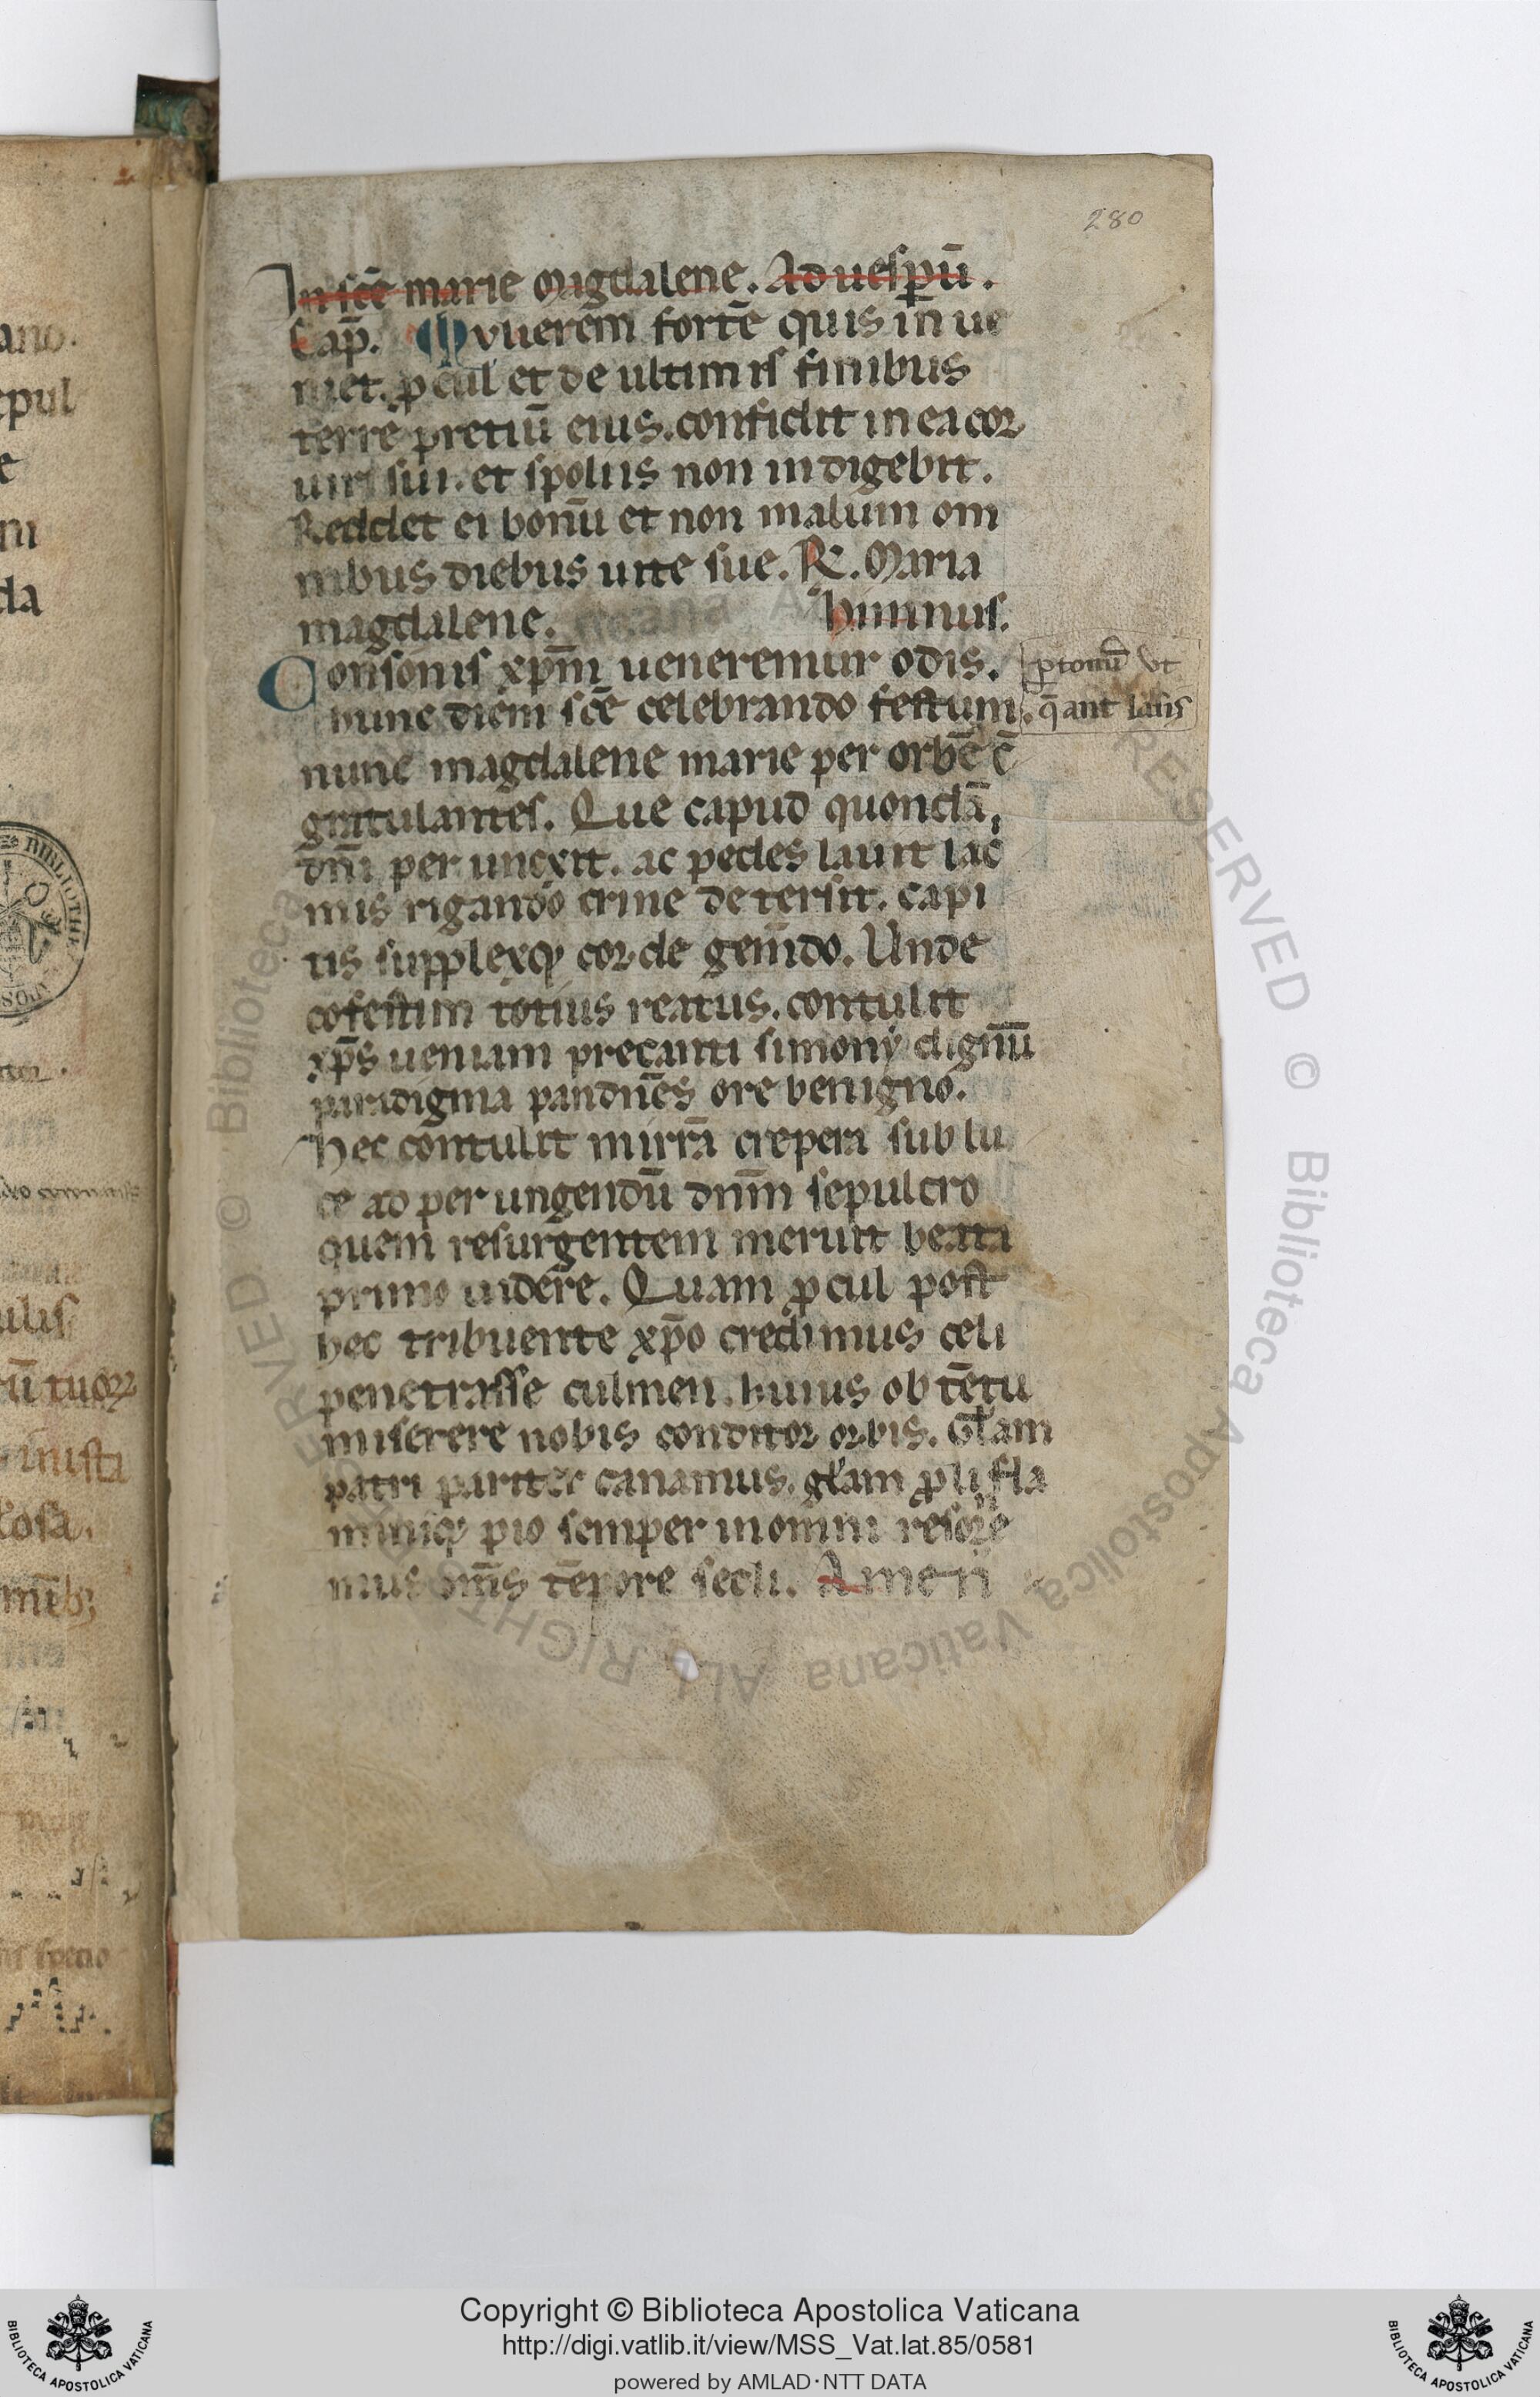 280
In scē marie Magdalene. Ad uesꝑū.
Cap̄. Mvlierem fortē quis in ue
niet. ꝓcul et de ultimis finibus
terre pretiū eius. confidit in ea cor
uiri sui. et spoliis non indigebit.
Reddet ei bonū et non malum om
nibus diebus uite sue. R. Maria
magdalene. himnus.
Consonis xp̄m ueneremur odis.
hunc diem scē celebrando festum.
nunc magdalene marie per orbē ē
gratulantes. Que capud quondā
dn̄i per uncxit. ac pedes lauit lac
mis rigando crine de tersit. capi
tis supplexqꝫ corde gemēdo. Unde
cofestim totius reatus. contulit
xp̄s ueniam precanti simony dignū
paradigma pandnēs ore benigno.
hec contulit mirrā crepera sub lu
ce ad per ungendū dnm̄ sepulcro
quem resurgentem meruit beata
primo uidere. Quam ꝓcul post
hec tribuente xp̄o credimus celi
penetrasse culmen. huius ob tētu
miserere nobis conditor orbis. Gl̄am
patri pariter canamus. gl̄am ꝓli fla
miniqꝫ pio semper in omni
mus om̄s tēpore secli. Amen
ano.
epul
e
ni
da
ulis
ū tuorꝝ
iniusta
losa.
mēbꝫ
specio
Copyright © Biblioteca Apostolica Vaticana
http://digi.vatlib.it/view/MSS_Vat.lat.85/0581
powered by AMLAD·NTT DATA
BIBLIOTECA APOSTOLICA VATICANA
BIBLIOTECA APOSTOLICA VATICANA